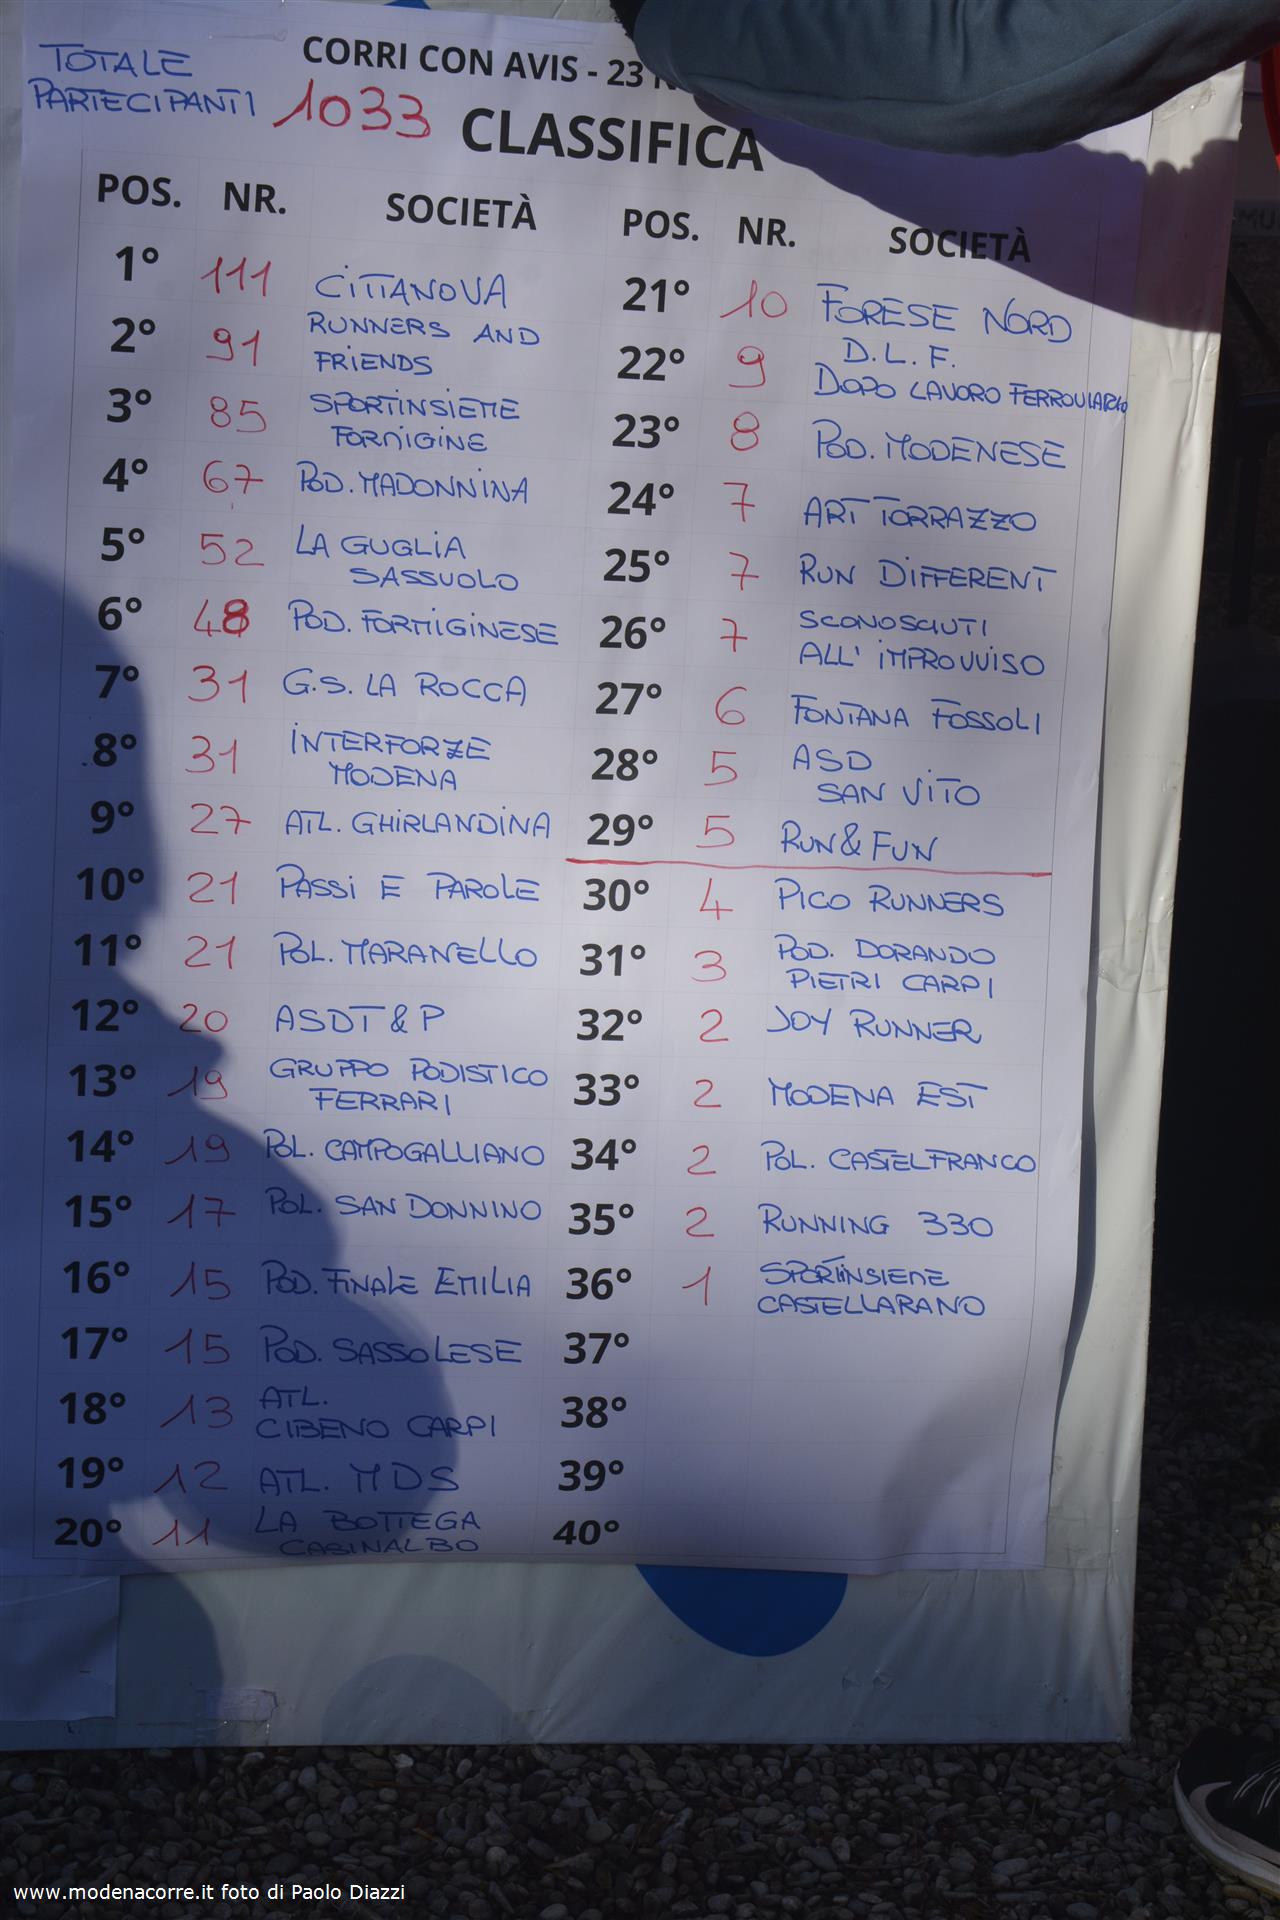 TOTALE
PARTECIPANTI 1033
CORRI CON AVIS - 23
CLASSIFICA
POS. NR. SOCIETÀ
1° 111 CITTANOVA
2° 91 RUNNERS AND
FRIENDS
3° 85 SPORTINSIEME
FORMIGINE
4° 67 POD. MADONNINA
5° 52 LA GUGLIA
SASSUOLO
6° 48 POD. FORMIGINESE
7° 31 G.S. LA ROCCA
8° 31 INTERFORZE
MODENA
9° 27 ATL. GHIRLANDINA
10° 21 PASSI E PAROLE
11° 21 POL. MARANELLO
12° 20 ASDT & P
13° 19 GRUPPO PODISTICO
FERRARI
14° 19 POL. CAMPOGALLIANO
15° 17 POL. SAN DONNINO
16° 15 POD. FINALE EMILIA
17° 15 POD. SASSOLESE
18° 13 ATL.
CIBENO CARPI
19° 12 ATL. MDS
20° 11 LA BOTTEGA
CASINALBO
POS. NR. SOCIETÀ
21° 10 FORESE NORD
22° 9 D.L.F.
DOPO LAVORO FERROVIARIO
23° 8 POD. MODENESE
24° 7 ART TORRAZZO
25° 7 RUN DIFFERENT
26° 7 SCONOSCIUTI
ALL' IMPROVVISO
27° 6 FONTANA FOSSOLI
28° 5 ASD
SAN VITO
29° 5 RUN & FUN
30° 4 PICO RUNNERS
31° 3 POD. DORANDO
PIETRI CARPI
32° 2 JOY RUNNER
33° 2 MODENA EST
34° 2 POL. CASTELFRANCO
35° 2 RUNNING 330
36° 1 SPORTINSIEME
CASTELLARANO
37°
38°
39°
40°
www.modenacorre.it foto di Paolo Diazzi